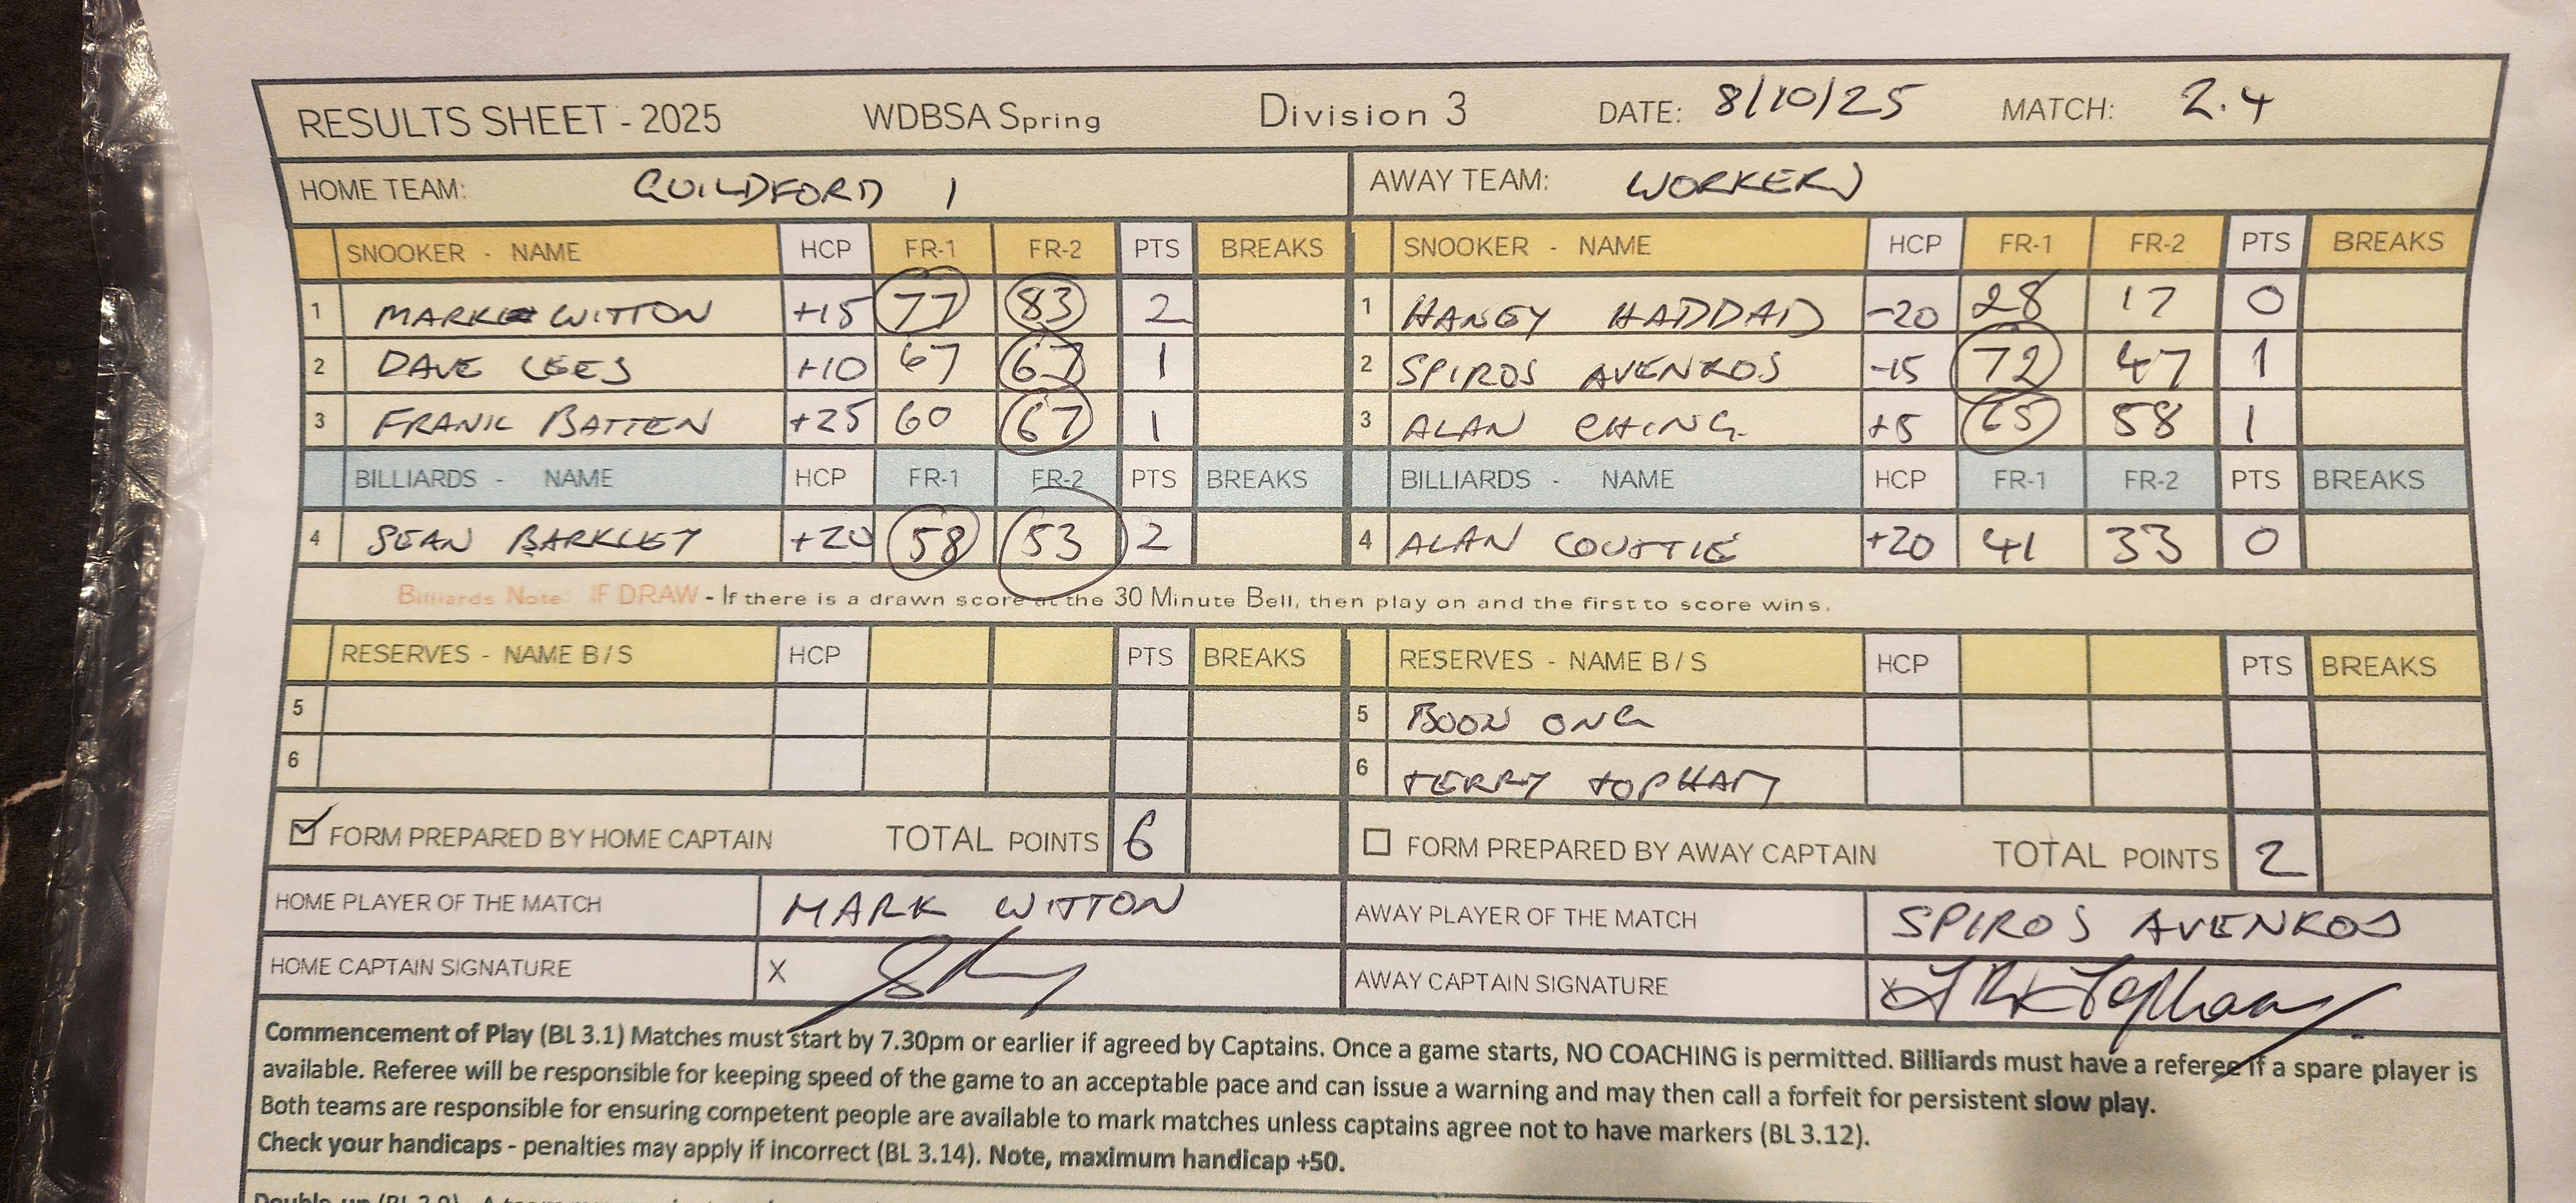 RESULTS SHEET - 2025 WDBSA Spring Division 3 DATE: 8/10/25 MATCH: 2.4
HOME TEAM: GUILDFORD 1 AWAY TEAM: WORKERS
SNOOKER - NAME HCP FR-1 FR-2 PTS BREAKS SNOOKER - NAME HCP FR-1 FR-2 PTS BREAKS
1 MARK WITTON +15 77 83 2 1 HANEY HADDAD -20 28 17 0
2 DAVE LEES +10 67 67 1 2 SPIROS AVENKOS -15 72 47 1
3 FRANK BATTEN +25 60 67 1 3 ALAN CHING +5 65 58 1
BILLIARDS - NAME HCP FR-1 FR-2 PTS BREAKS BILLIARDS - NAME HCP FR-1 FR-2 PTS BREAKS
4 SEAN BARKLEY +20 58 53 2 4 ALAN COUTTIE +20 41 33 0
Billiards Note: IF DRAW - If there is a drawn score at the 30 Minute Bell, then play on and the first to score wins.
RESERVES - NAME B / S HCP PTS BREAKS RESERVES - NAME B / S HCP PTS BREAKS
5 5 BOON ONG
6 6 TERRY TOPHAM
FORM PREPARED BY HOME CAPTAIN TOTAL POINTS 6 FORM PREPARED BY AWAY CAPTAIN TOTAL POINTS 2
HOME PLAYER OF THE MATCH MARK WITTON AWAY PLAYER OF THE MATCH SPIROS AVENKOS
HOME CAPTAIN SIGNATURE X AWAY CAPTAIN SIGNATURE X
Commencement of Play (BL 3.1) Matches must start by 7.30pm or earlier if agreed by Captains. Once a game starts, NO COACHING is permitted. Billiards must have a referee if a spare player is
available. Referee will be responsible for keeping speed of the game to an acceptable pace and can issue a warning and may then call a forfeit for persistent slow play.
Both teams are responsible for ensuring competent people are available to mark matches unless captains agree not to have markers (BL 3.12).
Check your handicaps - penalties may apply if incorrect (BL 3.14). Note, maximum handicap +50.